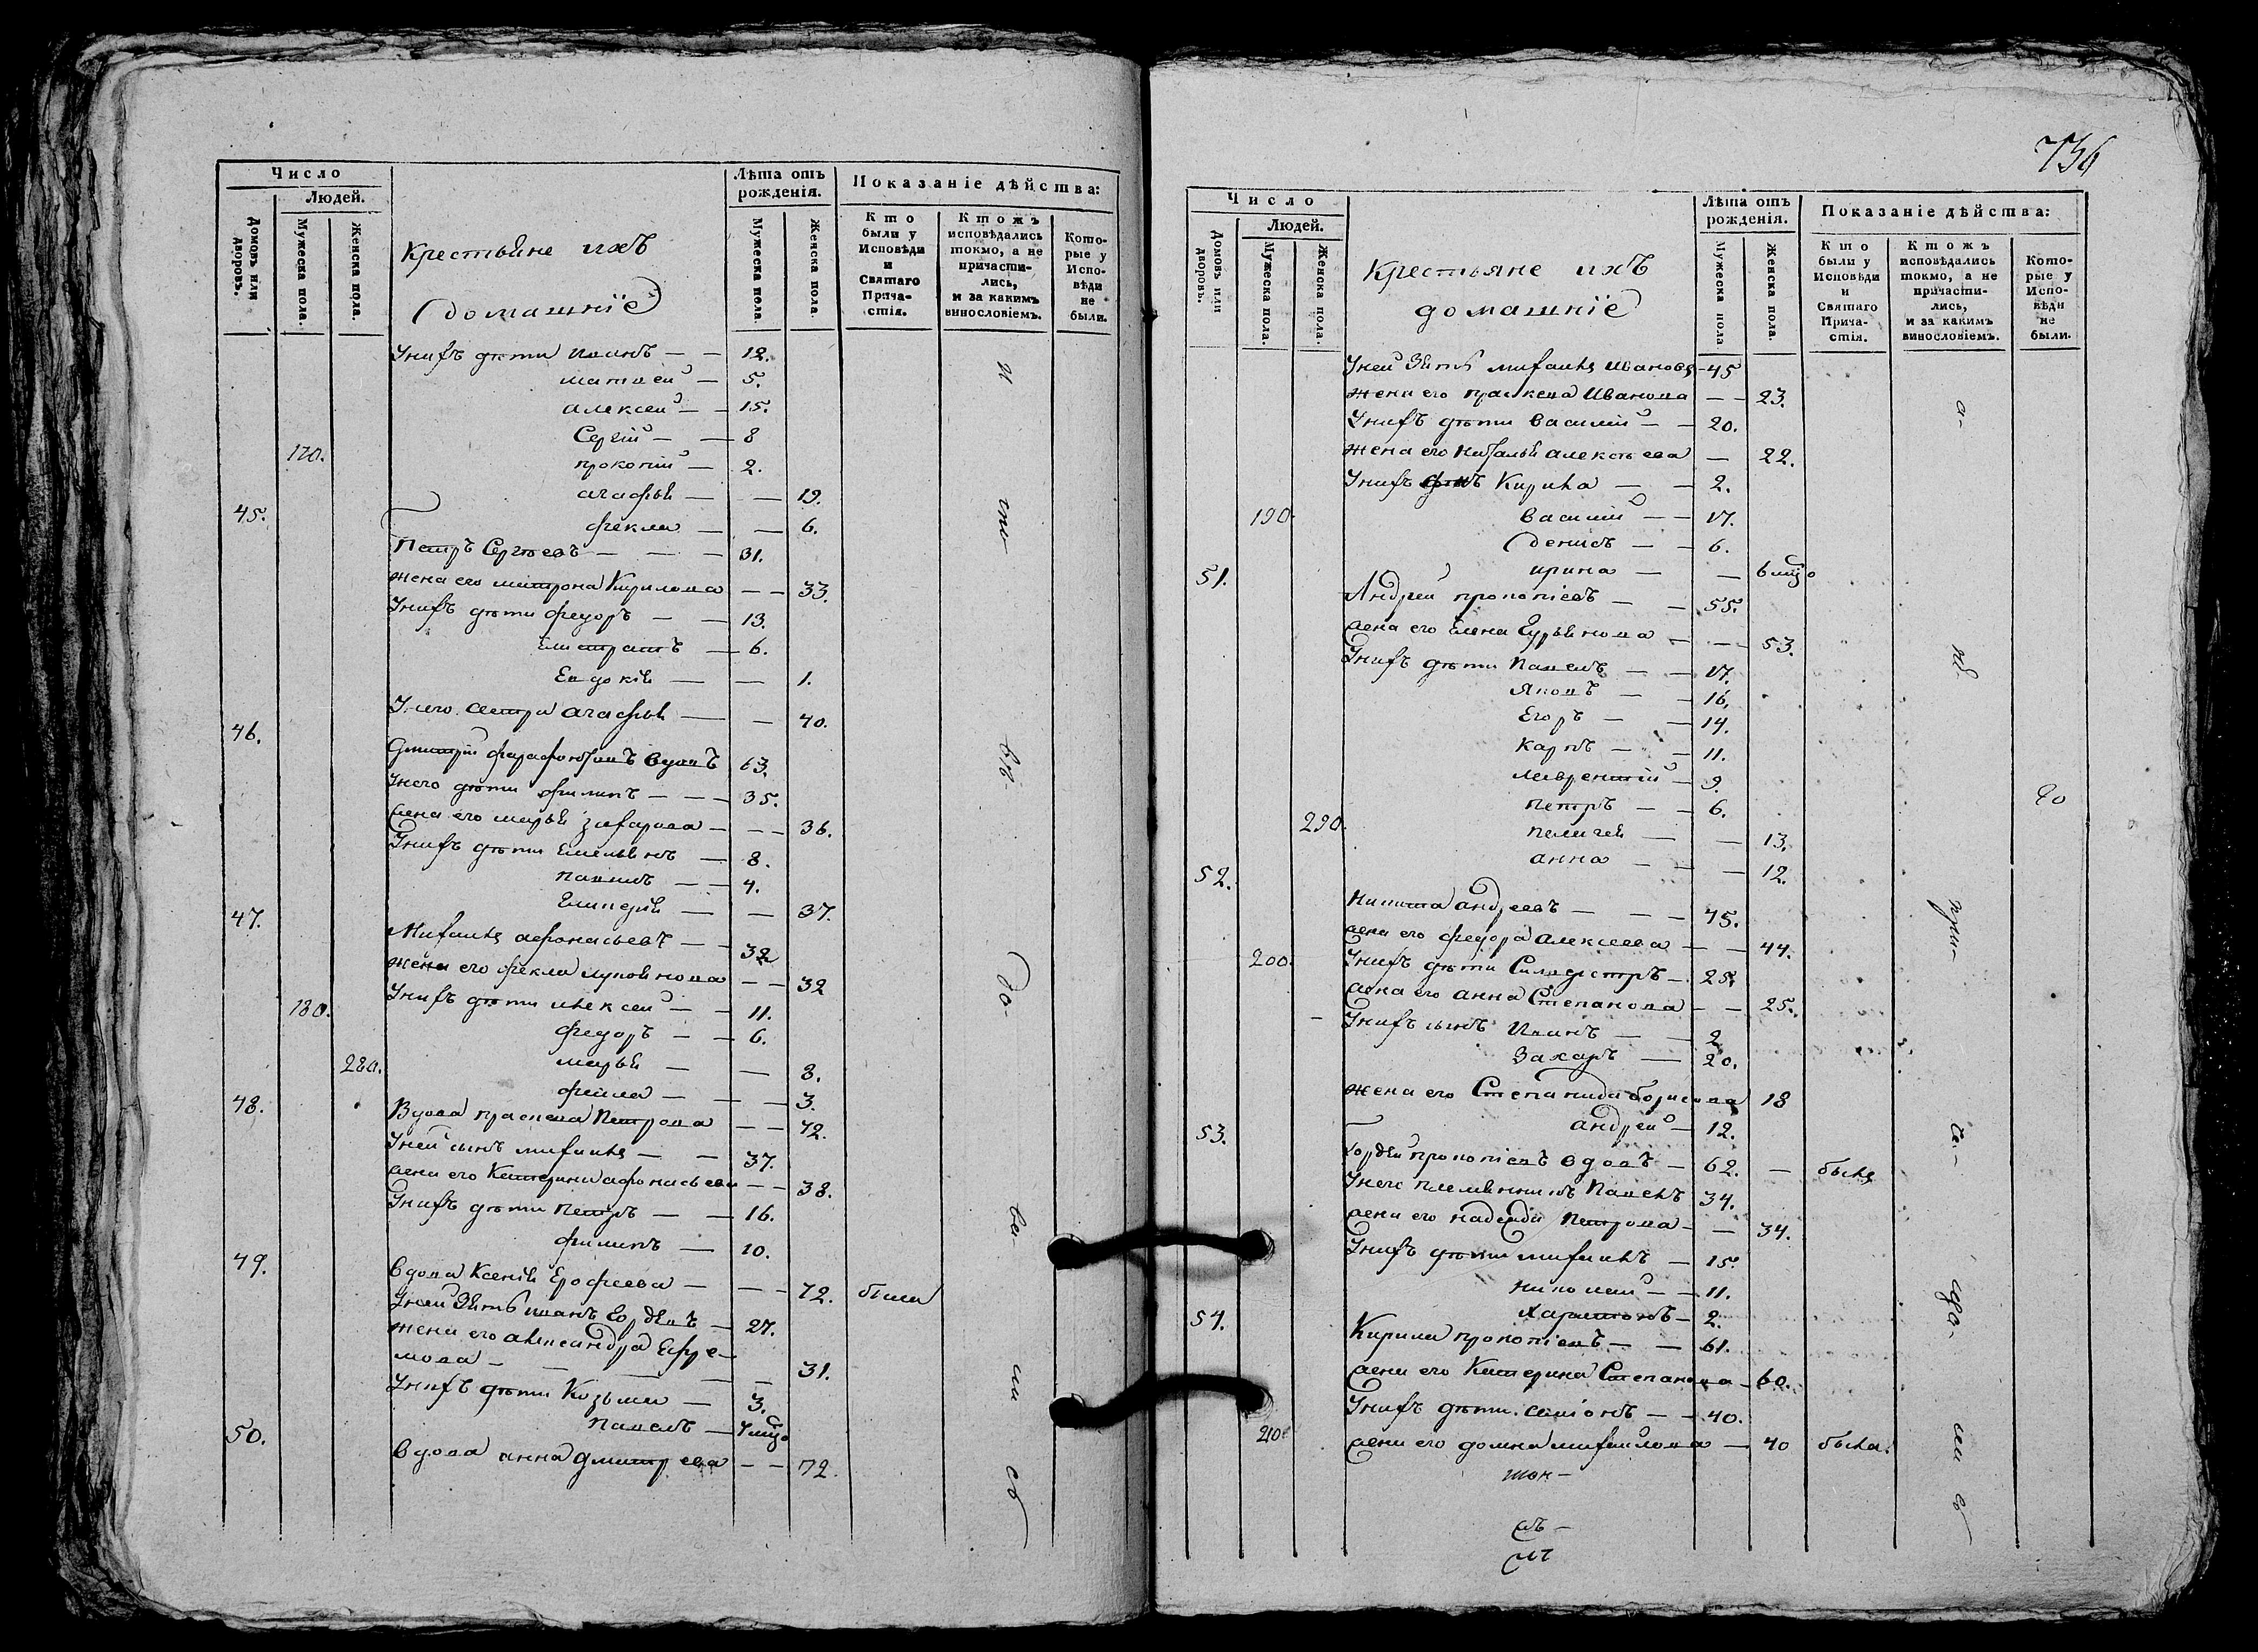 Число
Людей.
Домовъ или дворовъ.
Мужеска пола.
Женска пола.
Крестьяне ихъ
домашніе
Лѣта отъ рожденія.
Мужеска пола.
Женска пола.
Показаніе дѣйства:
Кто были у Исповѣди и Святаго Прича- стія.
Ктожъ исповѣдались токмо, а не причасти- лись, и за какимъ винословіемъ.
Кото- рые у Испо- вѣди не были.
Унихъ дѣти Иванъ — — 12.
матвей — 5.
алексей — — 15.
Сергій — — 8
170. прокопій — 2.
агафья — — 19.
45. фекла — — 6.
Петръ Сергѣевъ — — — 31.
жена его матрона Кирилова — — 33.
Унихъ дѣти федоръ — — 13.
Елистратъ — 6.
Евдокія — — 1.
Унего сестра агафья — — 40.
46. Дмитрій вдовъ 63.
Унего дѣти филипъ — — — 35.
жена его марья захарова — — — 36.
Унихъ дѣти Емельянъ — 8.
— — 4.
— — 37.
47. Михаила афонасьевъ — — 32
жена его фекла лукоянова — — 32
180. Унихъ дѣти алексей — — 11.
федоръ — — 6.
280. марья — — 8.
— — — 3.
48. Вдова Петрова — — 72.
Уней сынъ михаила — — 37.
жена его Катерина афонасьева — — 38.
Унихъ дѣти Петръ — — 16.
филипъ — 10.
49. вдова Ксенія Ерофеева — — — 72. была
Уней Зять иванъ — 27.
жена его александра Ефре-
мова — — — — — 31.
Унихъ дѣти Козьма — 3.
Павелъ —
50. вдова анна дмитрева — — 72.
736
Число
Людей.
Домовъ или дворовъ.
Мужеска пола.
Женска пола.
Крестьяне ихъ
домашніе
Лѣта отъ рожденія.
Мужеска пола
Женска пола.
Показаніе дѣйства:
Кто были у Исповѣди и Святаго Прича- стія.
Ктожъ исповѣдались токмо, а не причасти- лись, и за какимъ винословіемъ.
Кото- рые у Испо- вѣди не были.
Уней Зять михаила Ивановъ — 45
жена его Иванова — — 23.
Унихъ дѣти василій — — 20.
жена его наталья алексѣева — 22.
Унихъ Кирила — — 2.
190. василій — — 17.
денисъ — — 6.
51. ирина — —
Андрей прокопіевъ — — 55.
жена его Елена — — 53.
Унихъ дѣти Павелъ — — 17.
Яковъ — — 16.
Егоръ — — 14.
карпъ — — 11.
лаврентій — 9.
петръ — — 6.
290. пелагея — — 13.
52. анна — — — 12.
Никита андреевъ — — — 45.
жена его федора алексеева — — 44.
200. Унихъ дѣти Силвестръ — 25.
жена его анна Степанова — — 25.
Унихъ сынъ Иванъ — — 2
Захаръ — 20.
жена его Степанида борисова 18
андрей — 12.
53. Гордей прокопіевъ вдовъ — 62. — былъ
Унего племянникъ Павелъ 34.
жена его надежда Петрова — — 34.
Унихъ дѣти михаилъ — 15.
николай — — 11.
54. Харитонъ — 2.
Кирила прокопіевъ — — 61.
жена его Катерина Степанова — 60.
Унихъ дѣти симіонъ — — 40.
210 жена его домна михайлова — 40 была.